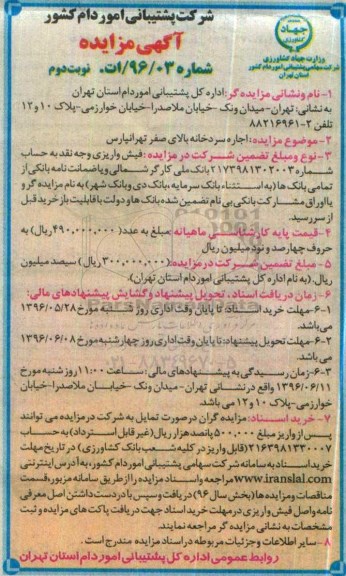 شرکت پشتیبانی امور دام کشور
آگهی مزایده
شماره ۹۶/۰۳/ات. نوبت دوم
جهاد
کشاورزی
وزارت جهاد کشاورزی
شرکت سهامی پشتیبانی امور دام کشور
استان تهران
۱- نام و نشانی مزایده گر: اداره کل پشتیبانی امور دام استان تهران
به نشانی: تهران-میدان ونک-خیابان ملاصدرا-خیابان خوارزمی-پلاک ۱۰ و ۱۲
تلفن ۲-۸۸۲۱۶۹۶۱
۲- موضوع مزایده: اجاره سردخانه بالای صفر تهرانپارس
۳- نوع و مبلغ تضمین شرکت در مزایده: فیش واریزی وجه نقد به حساب
شماره ۲۱۷۳۹۸۱۳۰۲۰۰۳ بانک ملی کارگر شمالی و یا ضمانت نامه بانکی از
تمامی بانک ها (به استثناء بانک سرمایه، بانک دی و بانک شهر) به نام مزایده گر و
یا اوراق مشارکت بانکی بی نام تضمین شده بانک ها و دولت با قابلیت باز خرید قبل
از سررسید.
۴- قیمت پایه کارشناسی ماهیانه مبلغ به عدد (۴۹۰,۰۰۰,۰۰۰ ریال) به
حروف چهارصد و نود میلیون ریال
۵- مبلغ تضمین شرکت در مزایده: (۳۰۰,۰۰۰,۰۰۰ ریال) سیصد میلیون
ریال. (به نام اداره کل پشتیبانی امور دام استان تهران).
۶- زمان دریافت اسناد، تحویل پیشنهاد و گشایش پیشنهادهای مالی:
۶-۱- مهلت خرید اسناد تا پایان وقت اداری روز شنبه مورخ ۱۳۹۶/۰۵/۲۸
می باشد.
۶-۲- مهلت تحویل پیشنهاد: تا پایان وقت اداری روز چهارشنبه مورخ ۱۳۹۶/۰۶/۰۸
می باشد.
۶-۳- زمان رسیدگی به پیشنهادهای مالی: ساعت ۱۱:۰۰ روز شنبه مورخ
۱۳۹۶/۰۶/۱۱ واقع در نشانی تهران-میدان ونک-خیابان ملاصدرا-خیابان
خوارزمی-پلاک ۱۰ و ۱۲ می باشد.
۷- خرید اسناد: مزایده گران در صورت تمایل به شرکت در مزایده می توانند
پس از واریز مبلغ ۵۰۰,۰۰۰ پانصد هزار ریال (غیر قابل استرداد) به حساب
۲۱۶۳۹۸۱۳۳۰۰۰۷ (قابل واریز در کلیه شعب بانک کشاورزی) در تاریخ مهلت
خرید اسناد به سامانه شرکت سهامی پشتیبانی امور دام کشور، به آدرس اینترنتی
www.iranslal.com مراجعه و اسناد مزایده را از طریق سامانه مزبور، قسمت
مناقصات و مزایده ها (بخش سال ۹۶) دریافت و سپس با در دست داشتن اصل معرفی
نامه و اصل فیش واریزی در مهلت خرید اسناد جهت دریافت پاکت های مزایده و ثبت
مشخصات به نشانی مزایده گر مراجعه نمایند.
۸- سایر اطلاعات و جزئیات مربوطه در اسناد مزایده مندرج است.
روابط عمومی اداره کل پشتیبانی امور دام استان تهران